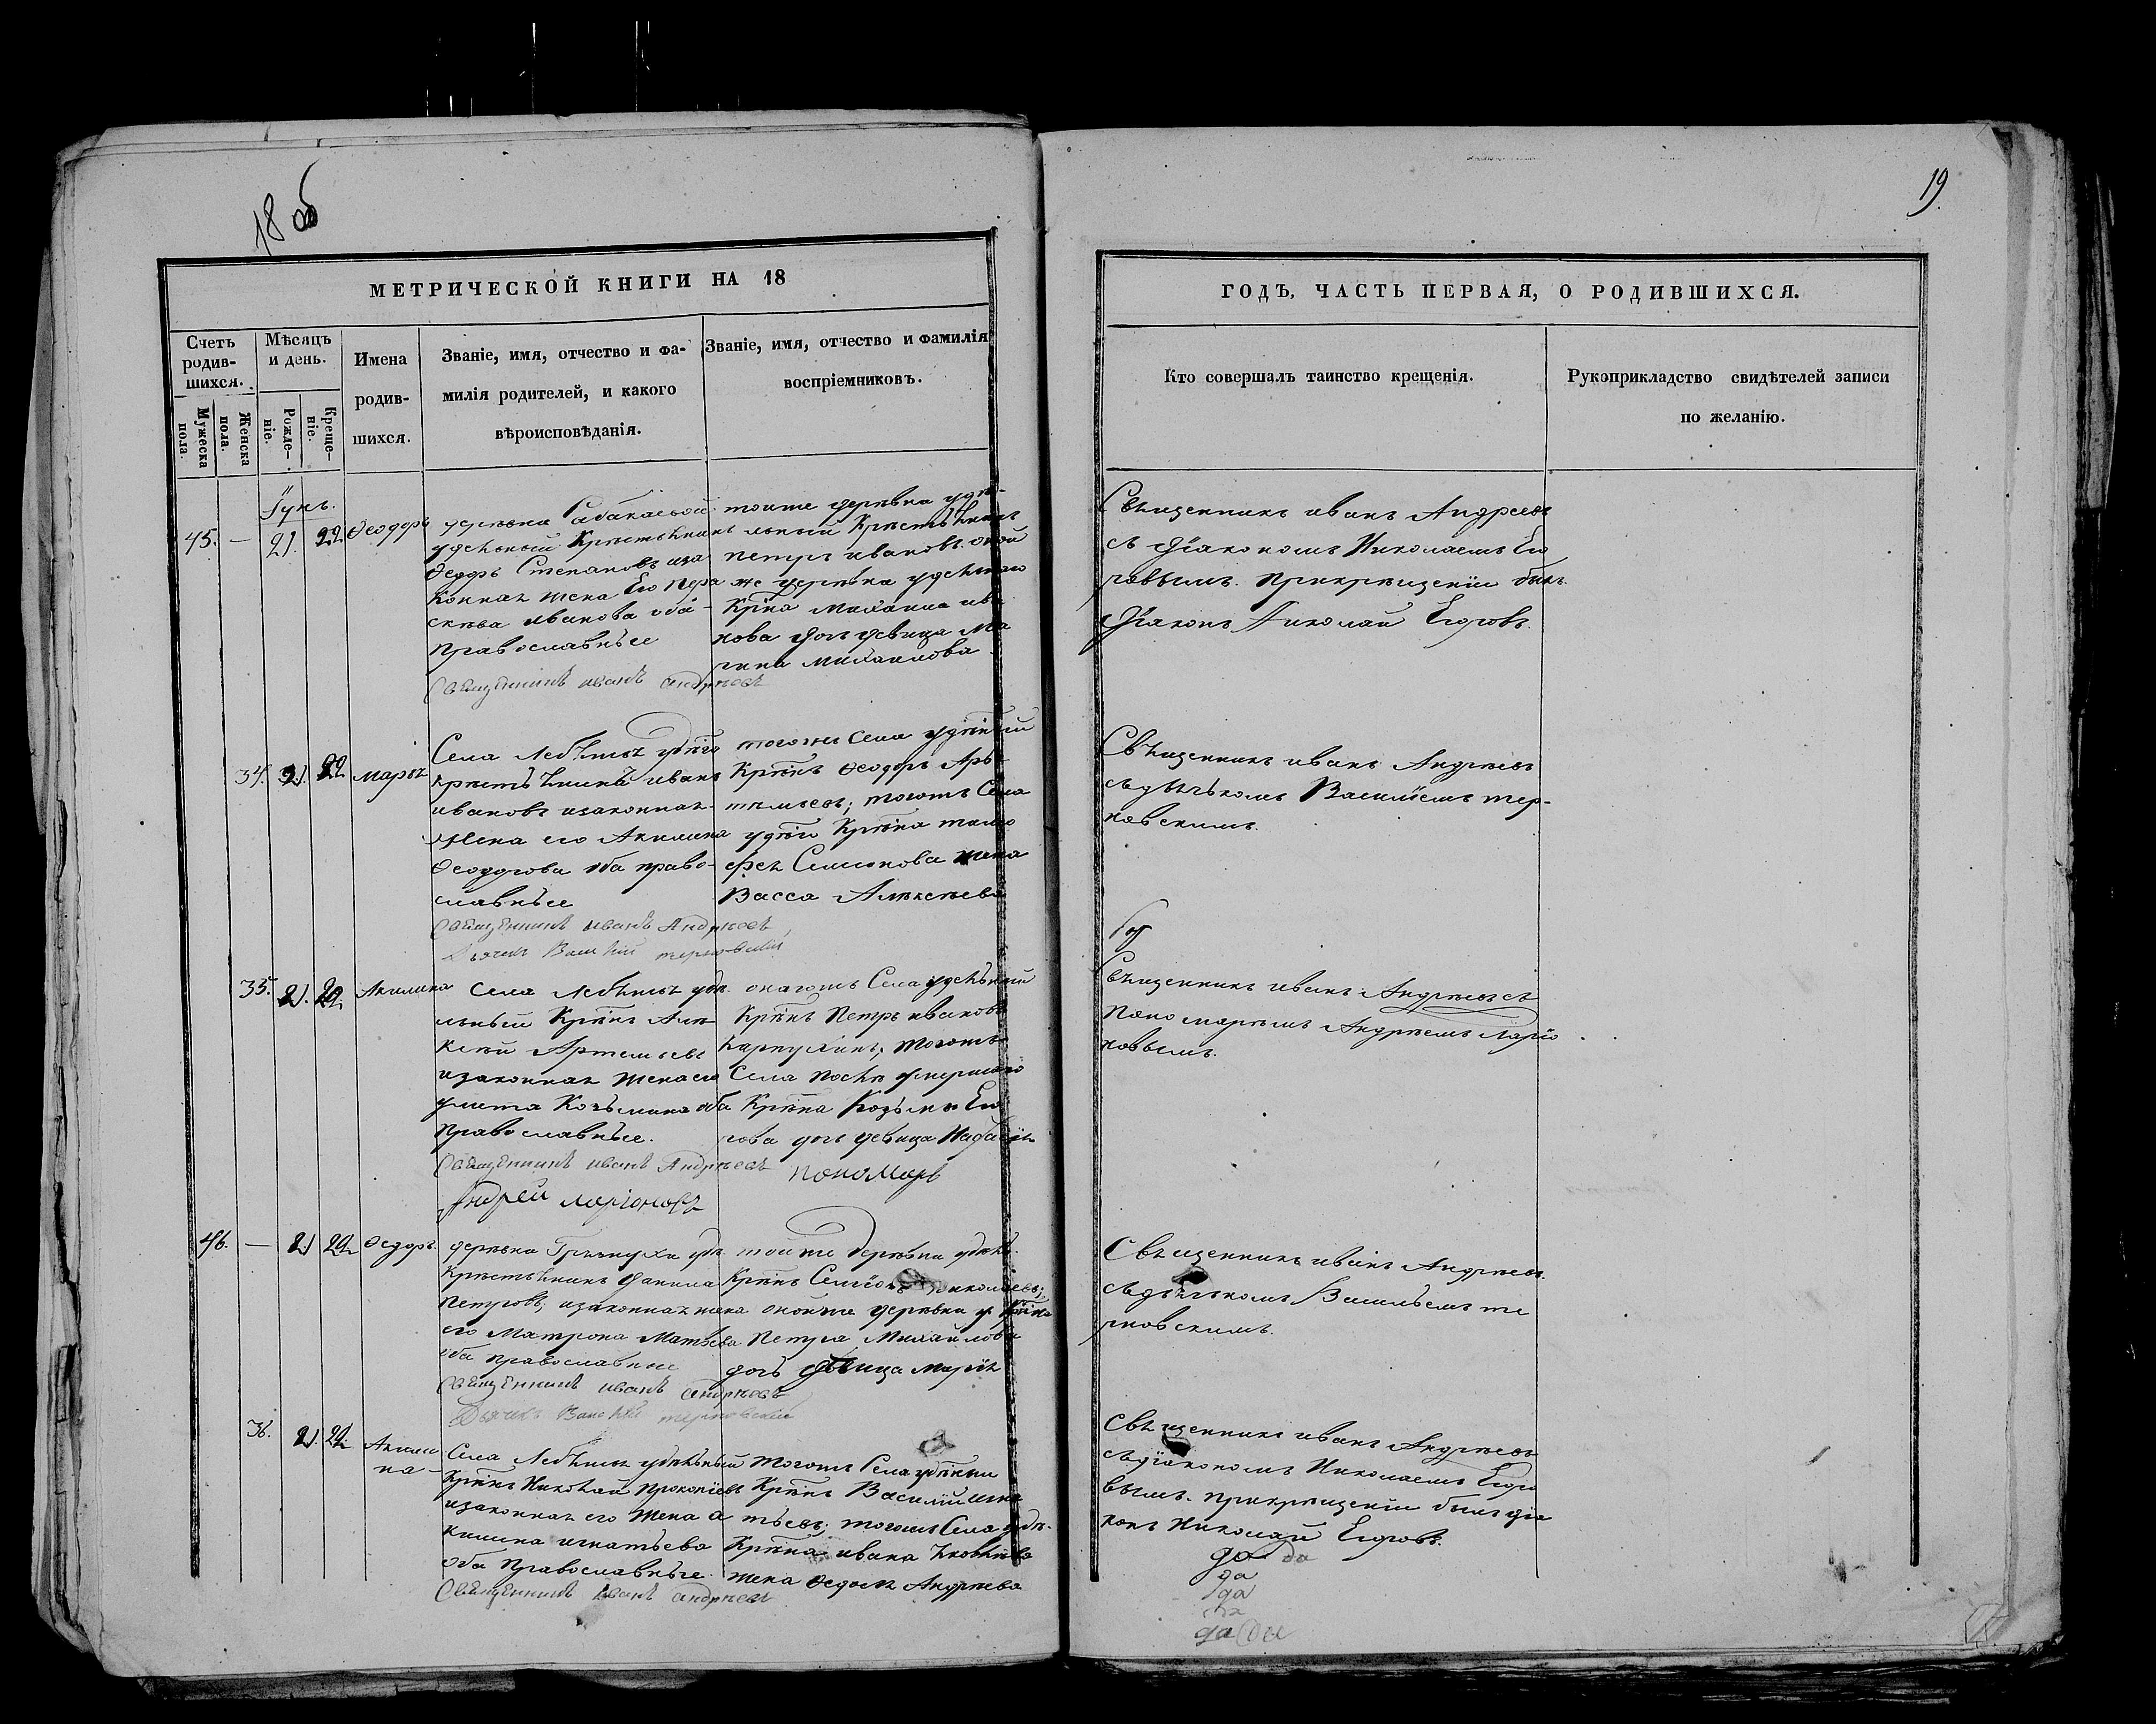 18 об
19.
МЕТРИЧЕСКОЙ КНИГИ НА 18
Счетъ родив-шихся.
Мужеска пола.
Женска пола.
Мѣсяцъ и день.
Рожде-ніе.
Креще-ніе.
Имена родив-шихся.
Званіе, имя, отчество и фа-
милія родителей, и какого
вѣроисповѣданія.
Званіе, имя, отчество и фамилія
воспріемниковъ.
ГОДЪ, ЧАСТЬ ПЕРВАЯ, О РОДИВШИХСЯ.
Кто совершалъ таинство крещенія.
Рукоприкладство свидѣтелей записи
по желанію.
Іунь.
45. — 21. 22 Ѳеодоръ
деревна Сабакаевой
удельный Крестьенинъ
Ѳеодръ Степановъ иза
конная жена Его Пера
скева иванова оба
православные
Священникъ иванъ андреевъ
тоиже деревна удѣ-
льный Крестьенинъ
Петръ ивановъ. оной
же деревна удельнаго
Крѣна Михаила ива
нова дочь девица Ма
рина михаилова
Священникъ иванъ Андреевъ
съ діакономъ Николаемъ Его
ровымъ. прикрещеніи былъ
діаконъ Николай Егоровъ.
34. 21. 22 марья
Села Лебежья удѣго
крестьенинъ иванъ
ивановъ изаконная
жена его Акилина
Ѳеодорова оба право-
славные
Священникъ иванъ Андреевъ
Дьячекъ Василій терновскій
тогоже Села удѣный
Крѣнъ Ѳеодоръ Арте
темьевъ; тогожъ Села
удѣго Крѣна тимо
фея Семионова жена
Васса Алексеева
Священникъ иванъ Андреевъ
съдьячькомъ Василіемъ тер-
новскимъ.
35. 21. 22. Акилина
Села Лебежья удѣ.
льный Крѣнъ Але
ксѣй Артемьевъ
изаконная женаего
улита Козьмина оба
православные.
Священникъ иванъ Андреевъ
пономарь
Андрей ларіоновъ
онагожъ Села удельный
Крѣнъ Петръ ивановъ
Карпухинъ; тогожъ
Села послѣ умершаго
Крѣна Козьмы Его
рова дочь девица
Священникъ иванъ Андреевъ съ
Пономаремъ Андреемъ ларіо
новымъ.
46. — 21 22 Ѳедоръ.
деревна Грязнуха удѣ.
Крестьенинъ данила
Петровъ; изаконная жена
его Матрона Матвева
оба православные
Священникъ иванъ андреевъ
Дьячекъ Василій терновскій
тоиже деревни удѣль.
Крѣнъ Семіонъ николаевъ;
онойже деревни у Крѣна
Петра Михаилова
дочь девица Марія
Священникъ иванъ Андреевъ.
съдьячькомъ Васильемъ те
рновскимъ.
36. 21. 22. Акили
на
Села Лебежья удѣльный
Крѣнъ Николай Прокопіевъ
изаконная его жена а
килина игнатьева
оба Православные.
Священникъ иванъ андреевъ
тогожъ Села удѣлный
Крѣнъ Василій игна
тьевъ; тогожъ Села удѣ.
Крѣна ивана Яковлева
жена Ѳедосья Андреева
Священникъ иванъ Андреевъ
съдіакономъ Николаемъ Егоро
вымъ. прикрещеніи былъ діа
конъ Николай Егоровъ.
да да
да
да
да